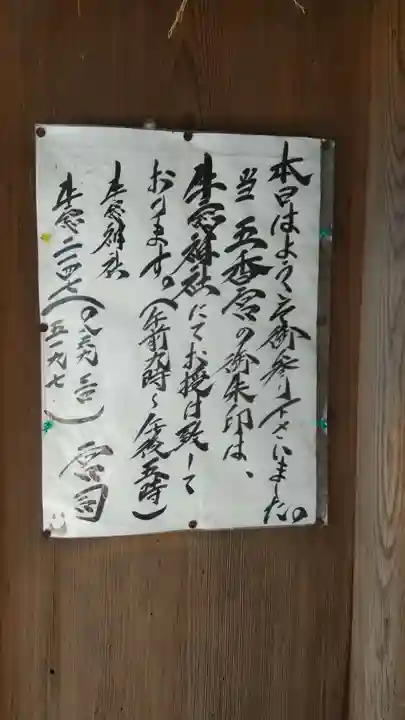 本日はようこそ御参り下さいました。
当 五香宮の御朱印は、
牛窓神社にてお授け致して
おります。(午前九時~午後五時)
牛窓神社
牛窓二一四七(〇八六九 三四 五一九七) 宮司